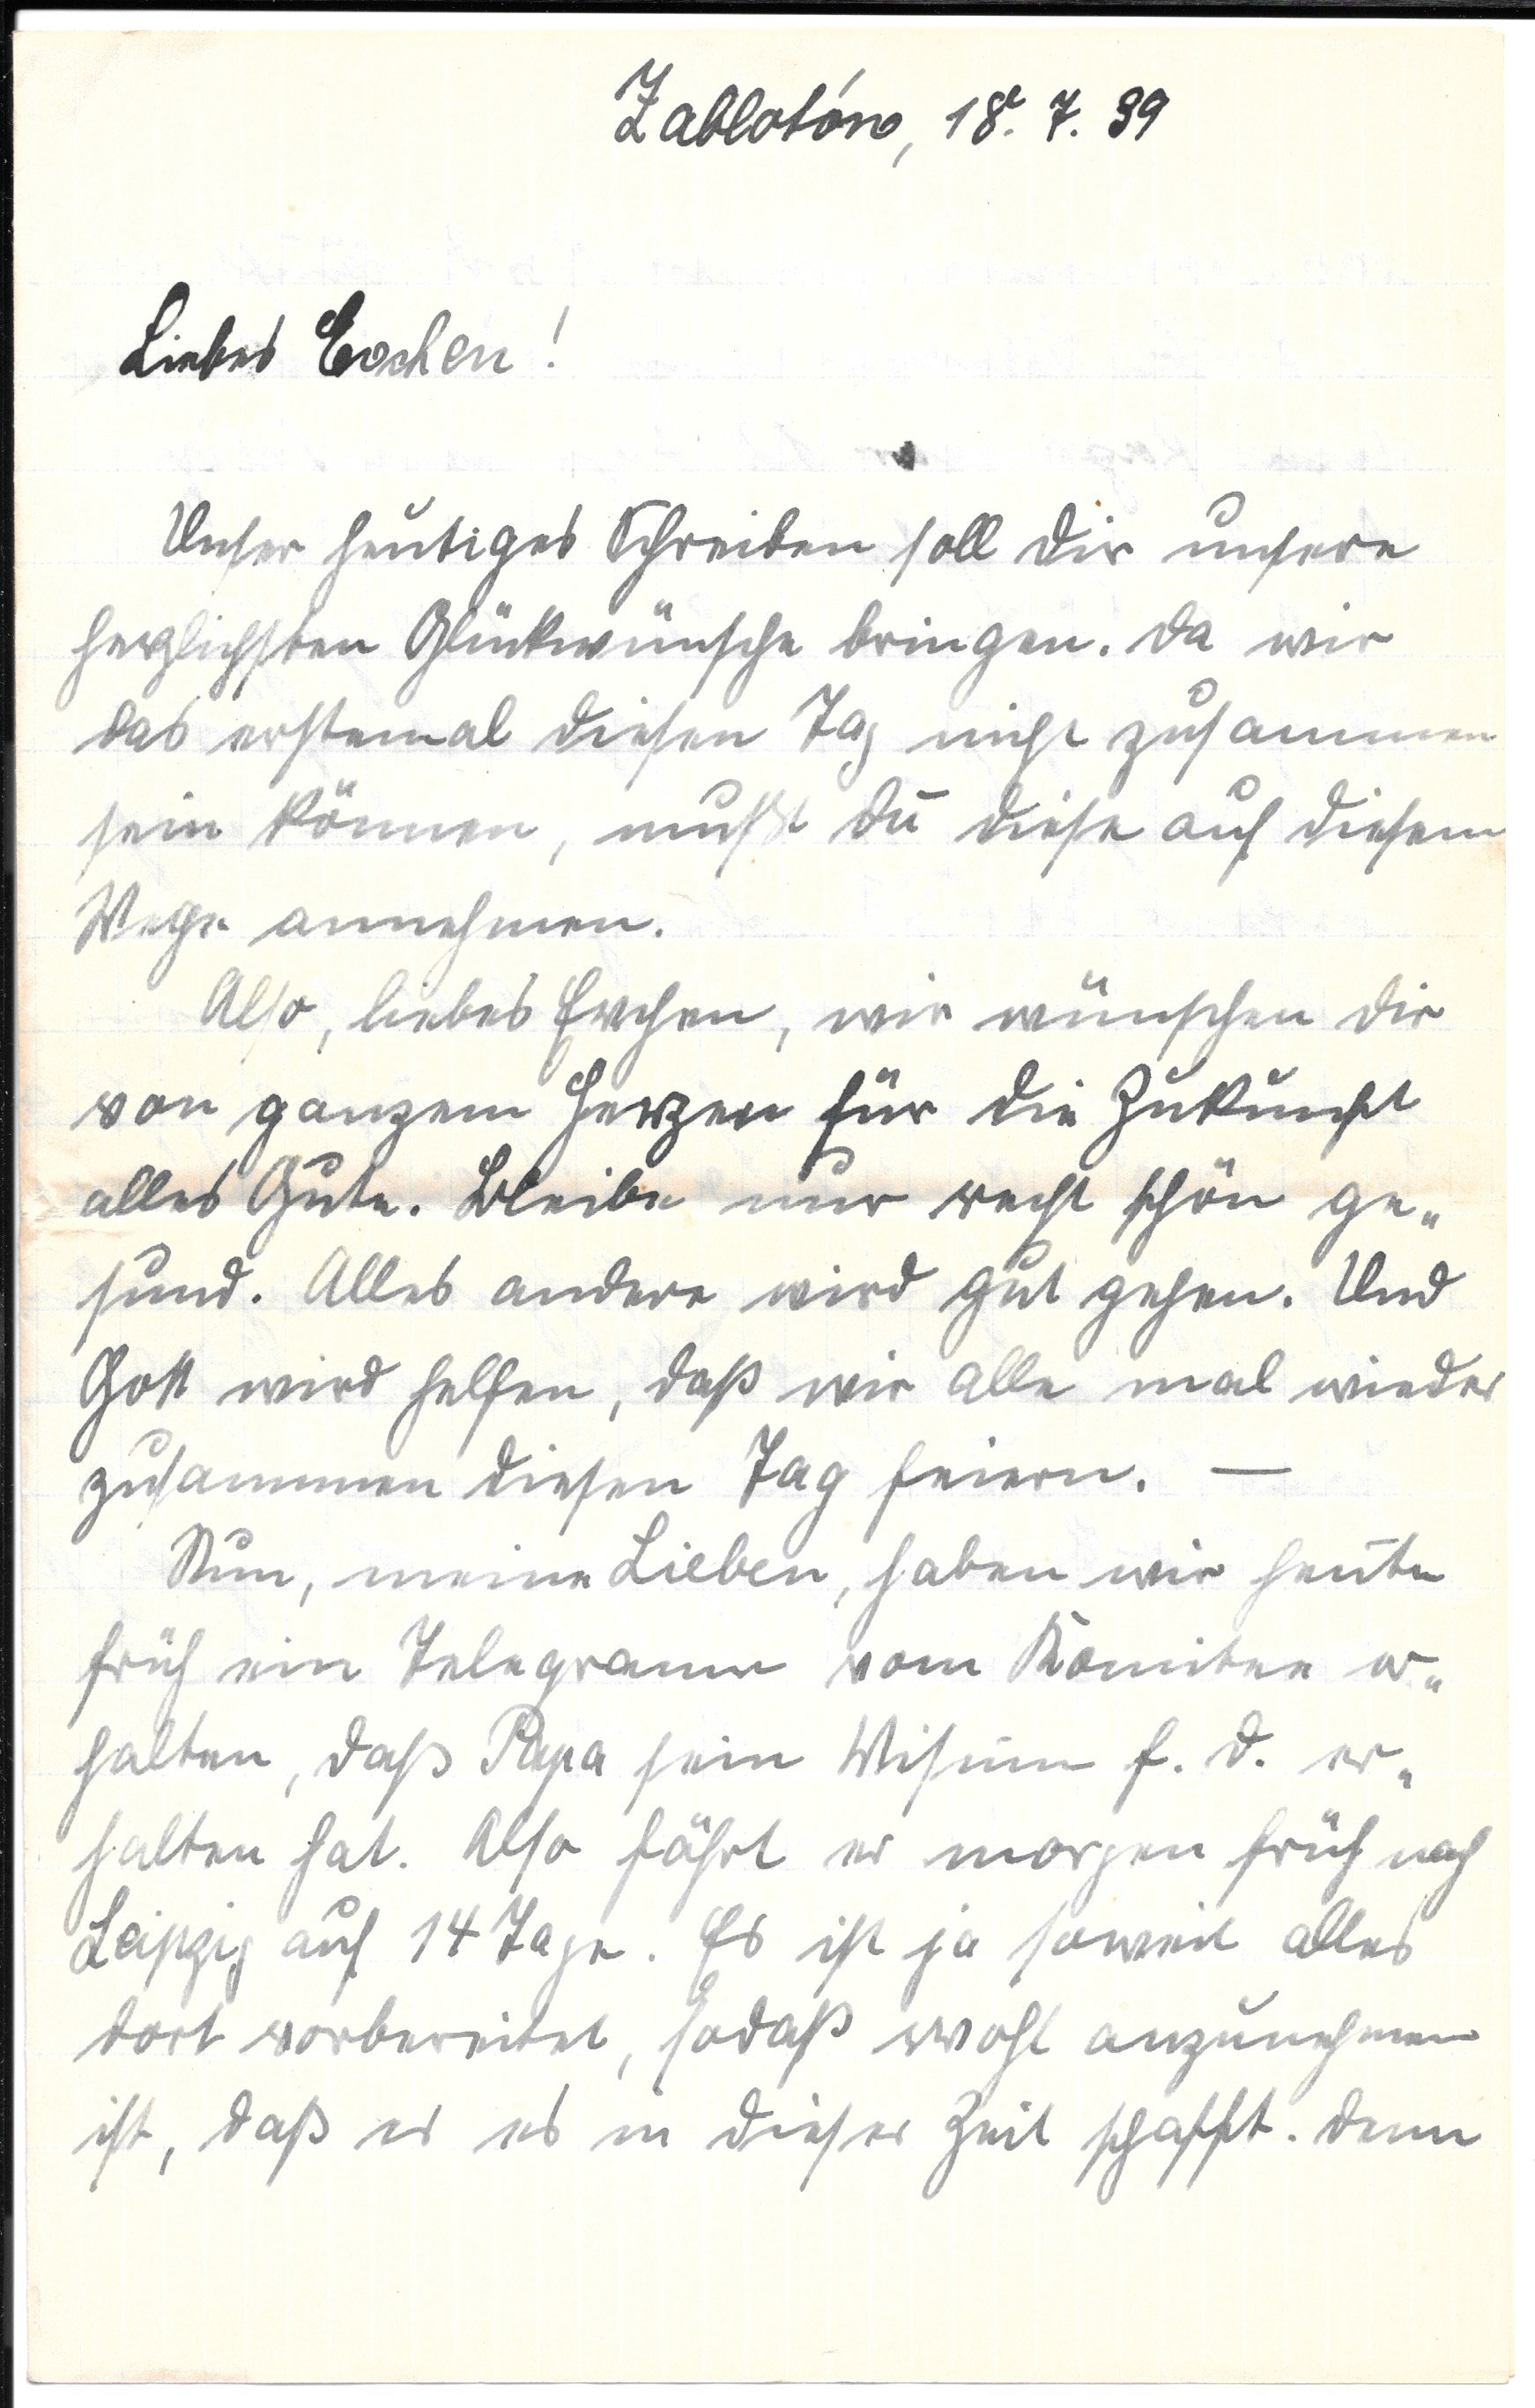 Zablotów, 18. 7. 39
Liebes Evchen!
Unser heutiges Schreiben soll Dir unsere
herzlichsten Glückwünsche bringen. Da wir
das erstemal diesen Tag nicht zusammen
sein können, mußt Du diese auf diesem
Wege annehmen.
Also, liebes Evchen, wir wünschen Dir
von ganzem Herzen für die Zukunft
alles Gute. Bleibe nur recht schön ge„
sund. Alles andere wird gut gehen. Und
Gott wird helfen, daß wir alle mal wieder
zusammen diesen Tag feiern. —
Nun, meine Lieben, haben wir heute
früh ein Telegramm vom Komitee er„
halten, daß Papa sein Visum f. D. er„
halten hat. Also fährt er morgen früh nach
Leipzig auf 14 Tage. Es ist ja soweit alles
dort vorbereitet, sodaß wohl anzunehmen
ist, daß er es in dieser Zeit schafft. Denn